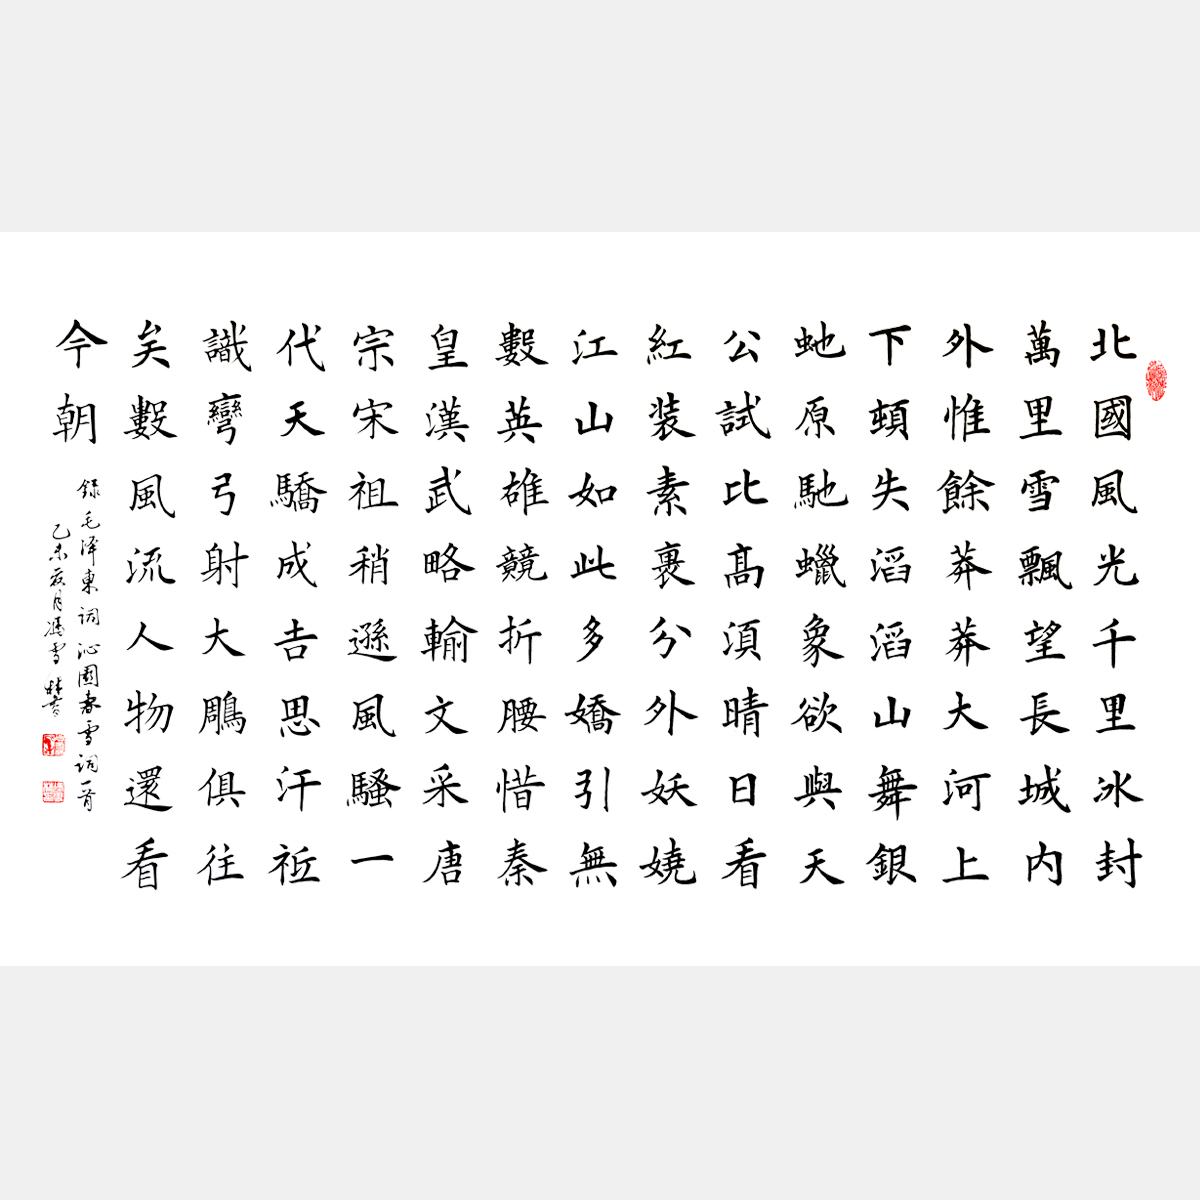 北國風光千里冰封
萬里雪飄望長城内
外惟餘莽莽大河上
下頓失滔滔山舞銀
虵原馳蠟象欲與天
公試比髙須晴日看
紅装素裹分外妖嬈
江山如此多嬌引無
數英雄競折腰惜秦
皇漢武略輸文采唐
宗宋祖稍遜風騷一
代天驕成吉思汗祗
識彎弓射大鵰俱往
矣數風流人物還看
今朝
録毛泽東词沁園春雪词一首
乙未夏月馮雪